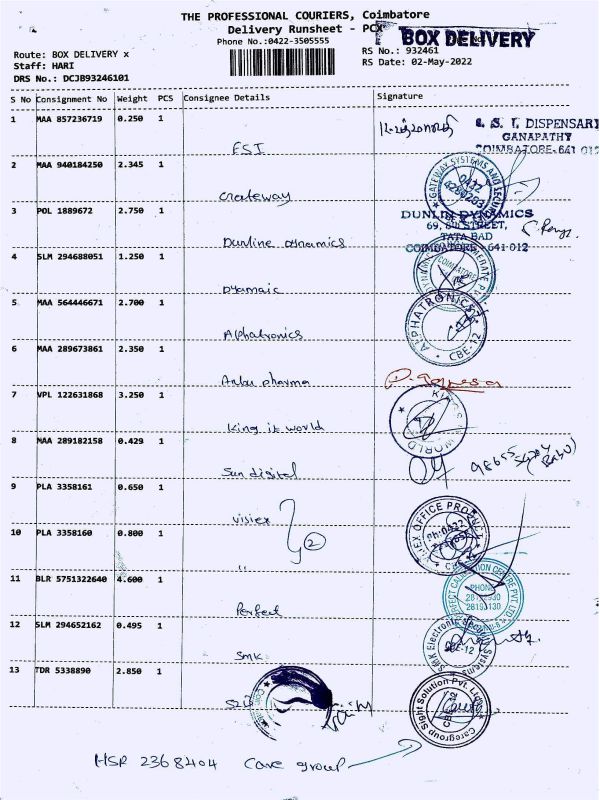 THE PROFESSIONAL COURIERS, Coimbatore
Delivery Runsheet - PCX
BOX DELIVERY
Phone No.:0422-3505555
RS No.: 932461
RS Date: 02-May-2022
Route: BOX DELIVERY x
Staff: HARI
DRS No.: DCJB93246101
S No Consignment No Weight PCS Consignee Details Signature
1 MAA 857236719 0.250 1
ESI
E. S. I. DISPENSARY
GANAPATHY
COIMBATORE-641 012
2 MAA 940184250 2.345 1
Gateway
3 POL 1889672 2.750 1
Dunline dynamics
DUNLIN DYNAMICS
69, 8th STREET,
TATA BAD
COIMBATORE - 641 012
4 SLM 294688051 1.250 1
Dynamaic
COIMBATORE
5 MAA 564446671 2.700 1
Alphatronics
ALPHATRONICS
CBE-12
6 MAA 289673861 2.350 1
Anbu pharma
7 VPL 122631868 3.250 1
King it world
KING
WORLD
8 MAA 289182158 0.429 1
Sun digital
98655
Babu)
9 PLA 3358161 0.650 1
visiex
2
OFFICE PRODUCT
Ph:0422
10 PLA 3358160 0.800 1
"
11 BLR 5751322640 4.600 1
Perfect
PHONE
12 SLM 294652162 0.495 1
SMK
SMK Electronic Systems
CBE-12
13 TDR 5338890 2.850 1
Caregroup Sight Solution Pvt. Ltd.
HSR 2368404 Care group